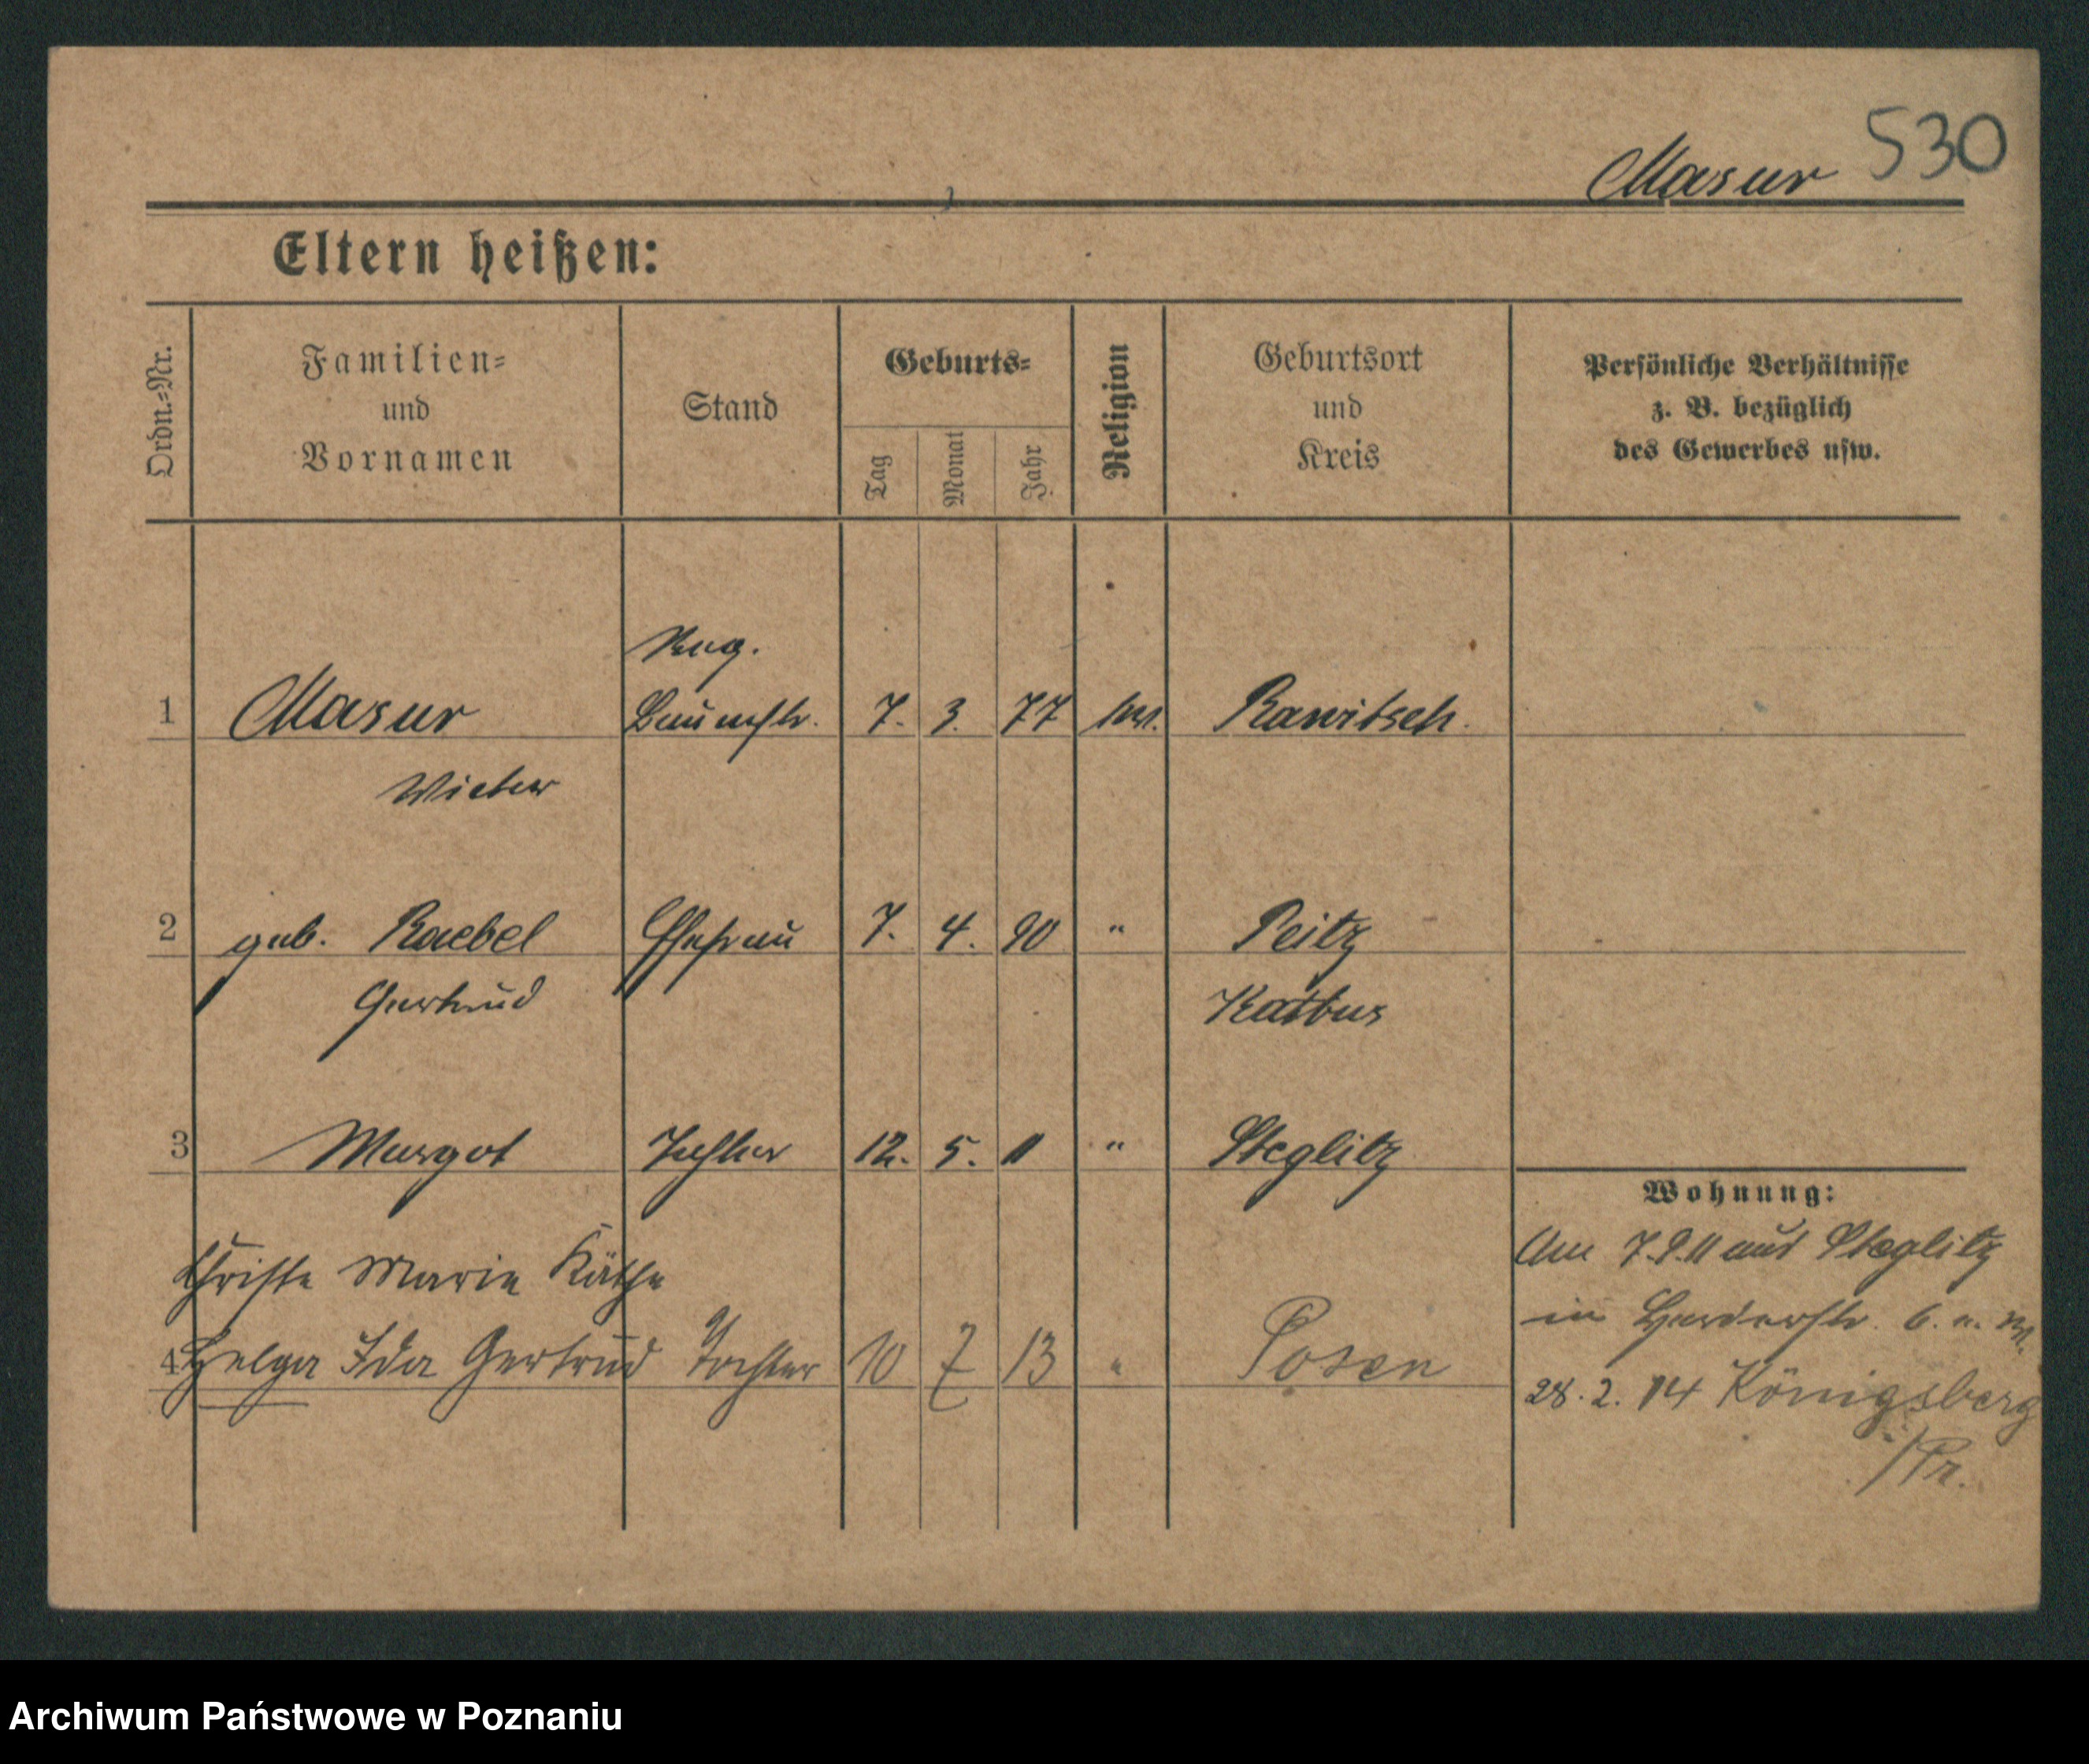 530
Masur
Eltern heißen:
Ordn.-Nr.
Familien-
und
Vornamen
Stand
Geburts-
Tag
Monat
Jahr
Religion
Geburtsort
und
Kreis
Persönliche Verhältnisse
z. B. bezüglich
des Gewerbes usw.
1 Masur Baumstr. 7. 3. 77 Rawitsch.
2 geb. Raebel Ehefrau 7. 4. 90 " Peitz
Gertrud Kotbus
3 Margot Tochter 12. 5. 11 " Steglitz
Wohnung:
Am 7.9.11 aus Steglitz
in Herderstr. 6.
Christa Marie Käthe
4 Helga Ida Gertrud Tochter 10 7 13 " Posen
28. 2. 14 Königsberg
/Pr.
Archiwum Państwowe w Poznaniu